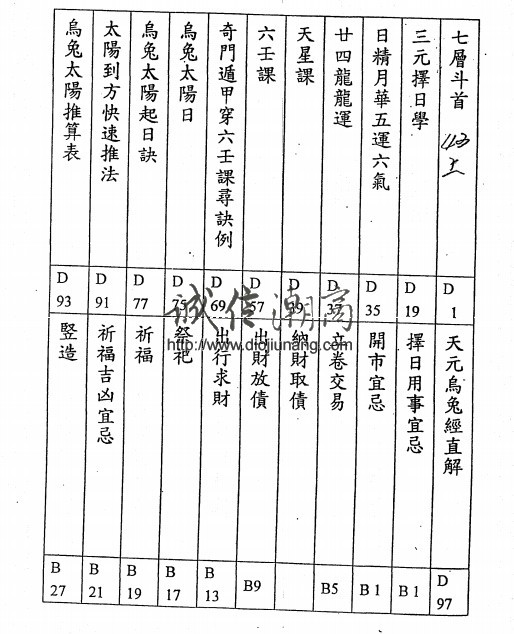 七層斗首
D 1
三元擇日學
D 19
日精月華五運六氣
D 35
廿四龍龍運
D 37
天星課
D 39
六壬課
D 57
奇門遁甲穿六壬課尋訣例
D 69
烏兔太陽日
D 75
烏兔太陽起日訣
D 77
太陽到方快速推法
D 91
烏兔太陽推算表
D 93
天元烏兔經直解
D 97
擇日用事宜忌
B 1
開市宜忌
B 1
立卷交易
B5
納財取債
出財放債
B9
出行求財
B 13
祭祀
B 17
祈福
B 19
祈福吉凶宜忌
B 21
竪造
B 27
誠信潮商
http://www.diojiunang.com